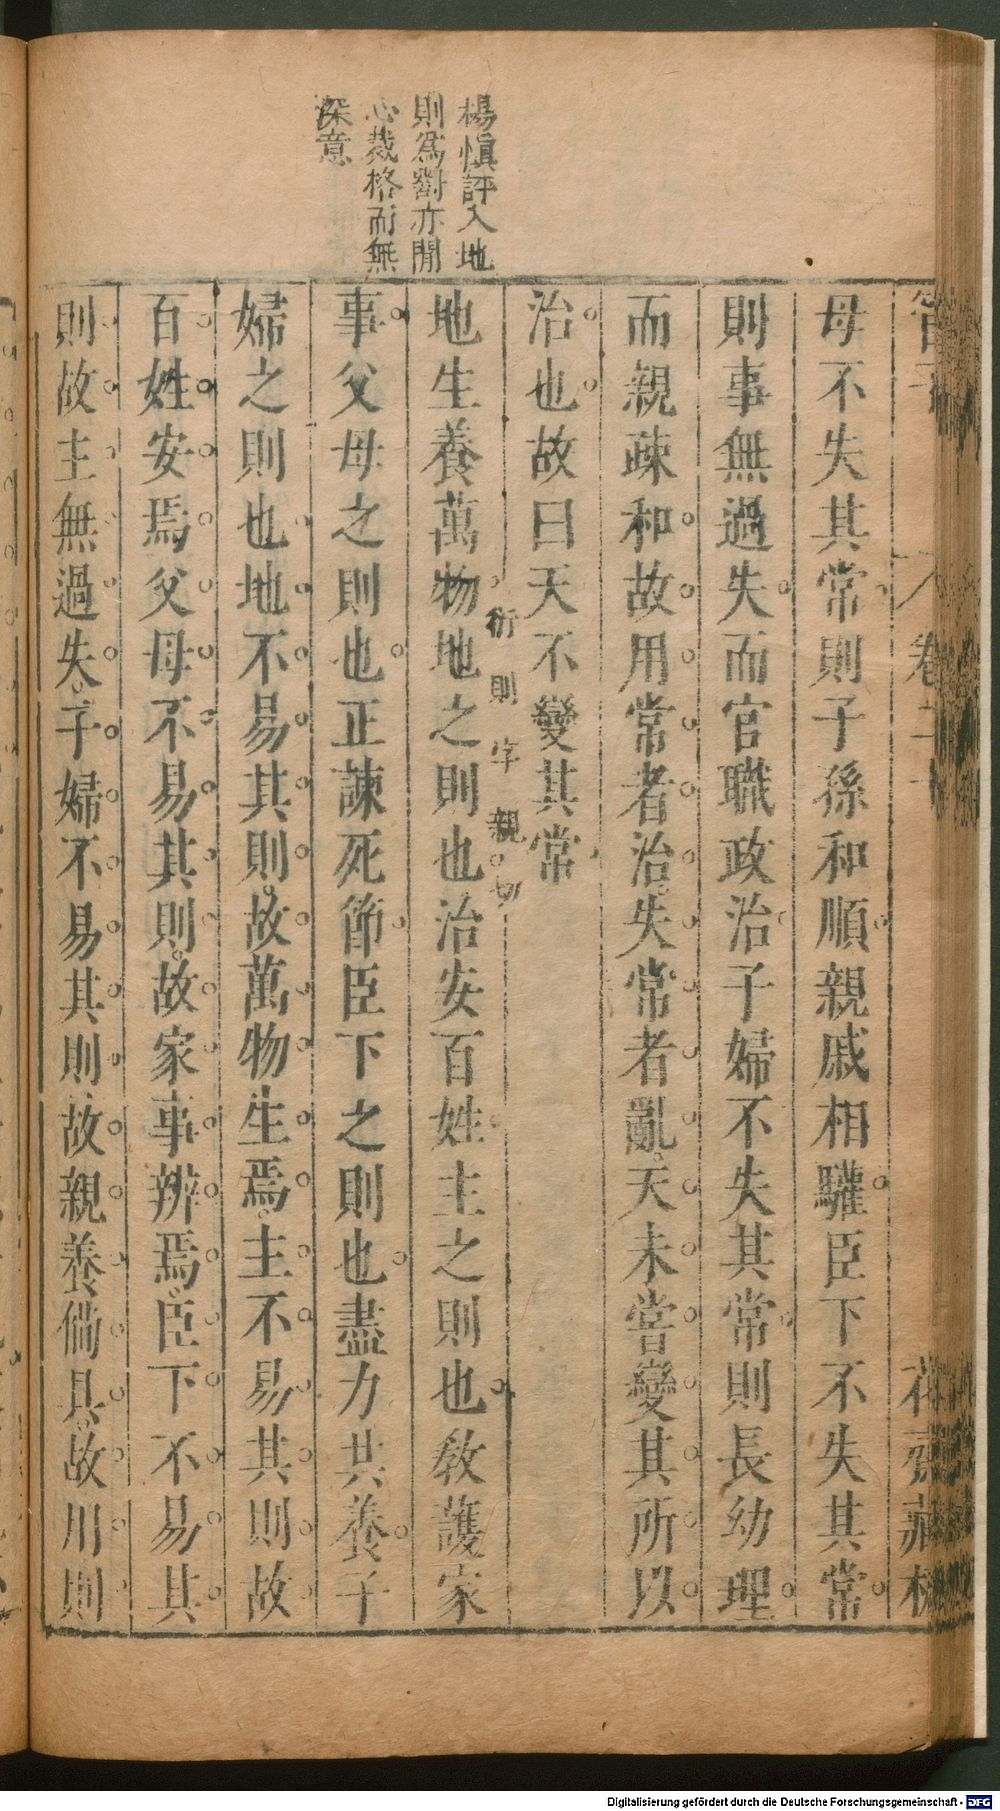 管子
卷二十
花齋藏板
母不失其常則子孫和順親戚相驩臣下不失其常
則事無過失而官職政治子婦不失其常則長幼理
而親疎和故用常者治失常者亂天未嘗變其所以
治也故曰天不變其常
衍則字親切
地生養萬物地之則也治安百姓主之則也教護家
事父母之則也正諫死節臣下之則也盡力共養子
婦之則也地不易其則故萬物生焉主不易其則故
百姓安焉父母不易其則故家事辨焉臣下不易其
則故主無過失子婦不易其則故親養備具故用則
楊慎評入地
則爲對亦閒
心裁格而無
深意
Digitalisierung gefördert durch die Deutsche Forschungsgemeinschaft - DFG